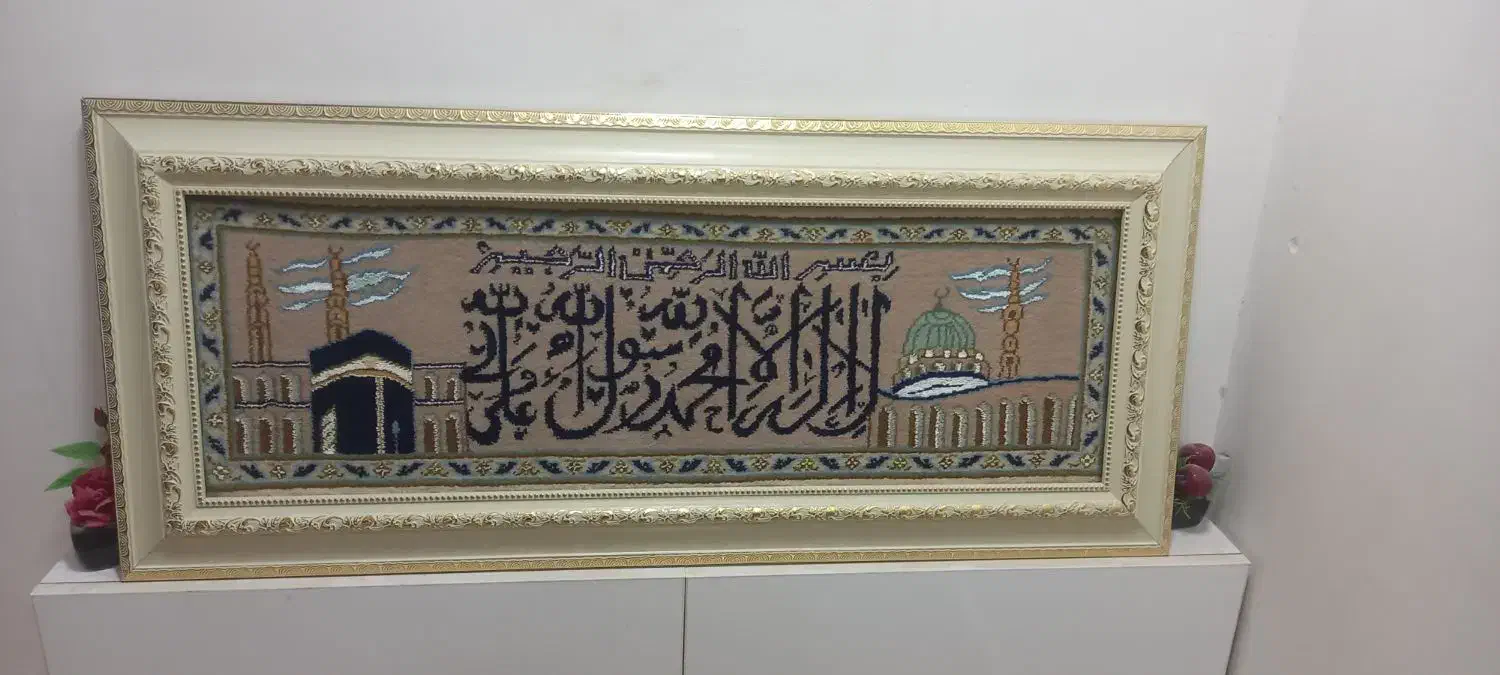 بسم الله الرحمن الرحيم
لا اله الا الله محمد رسول الله علی ولی الله